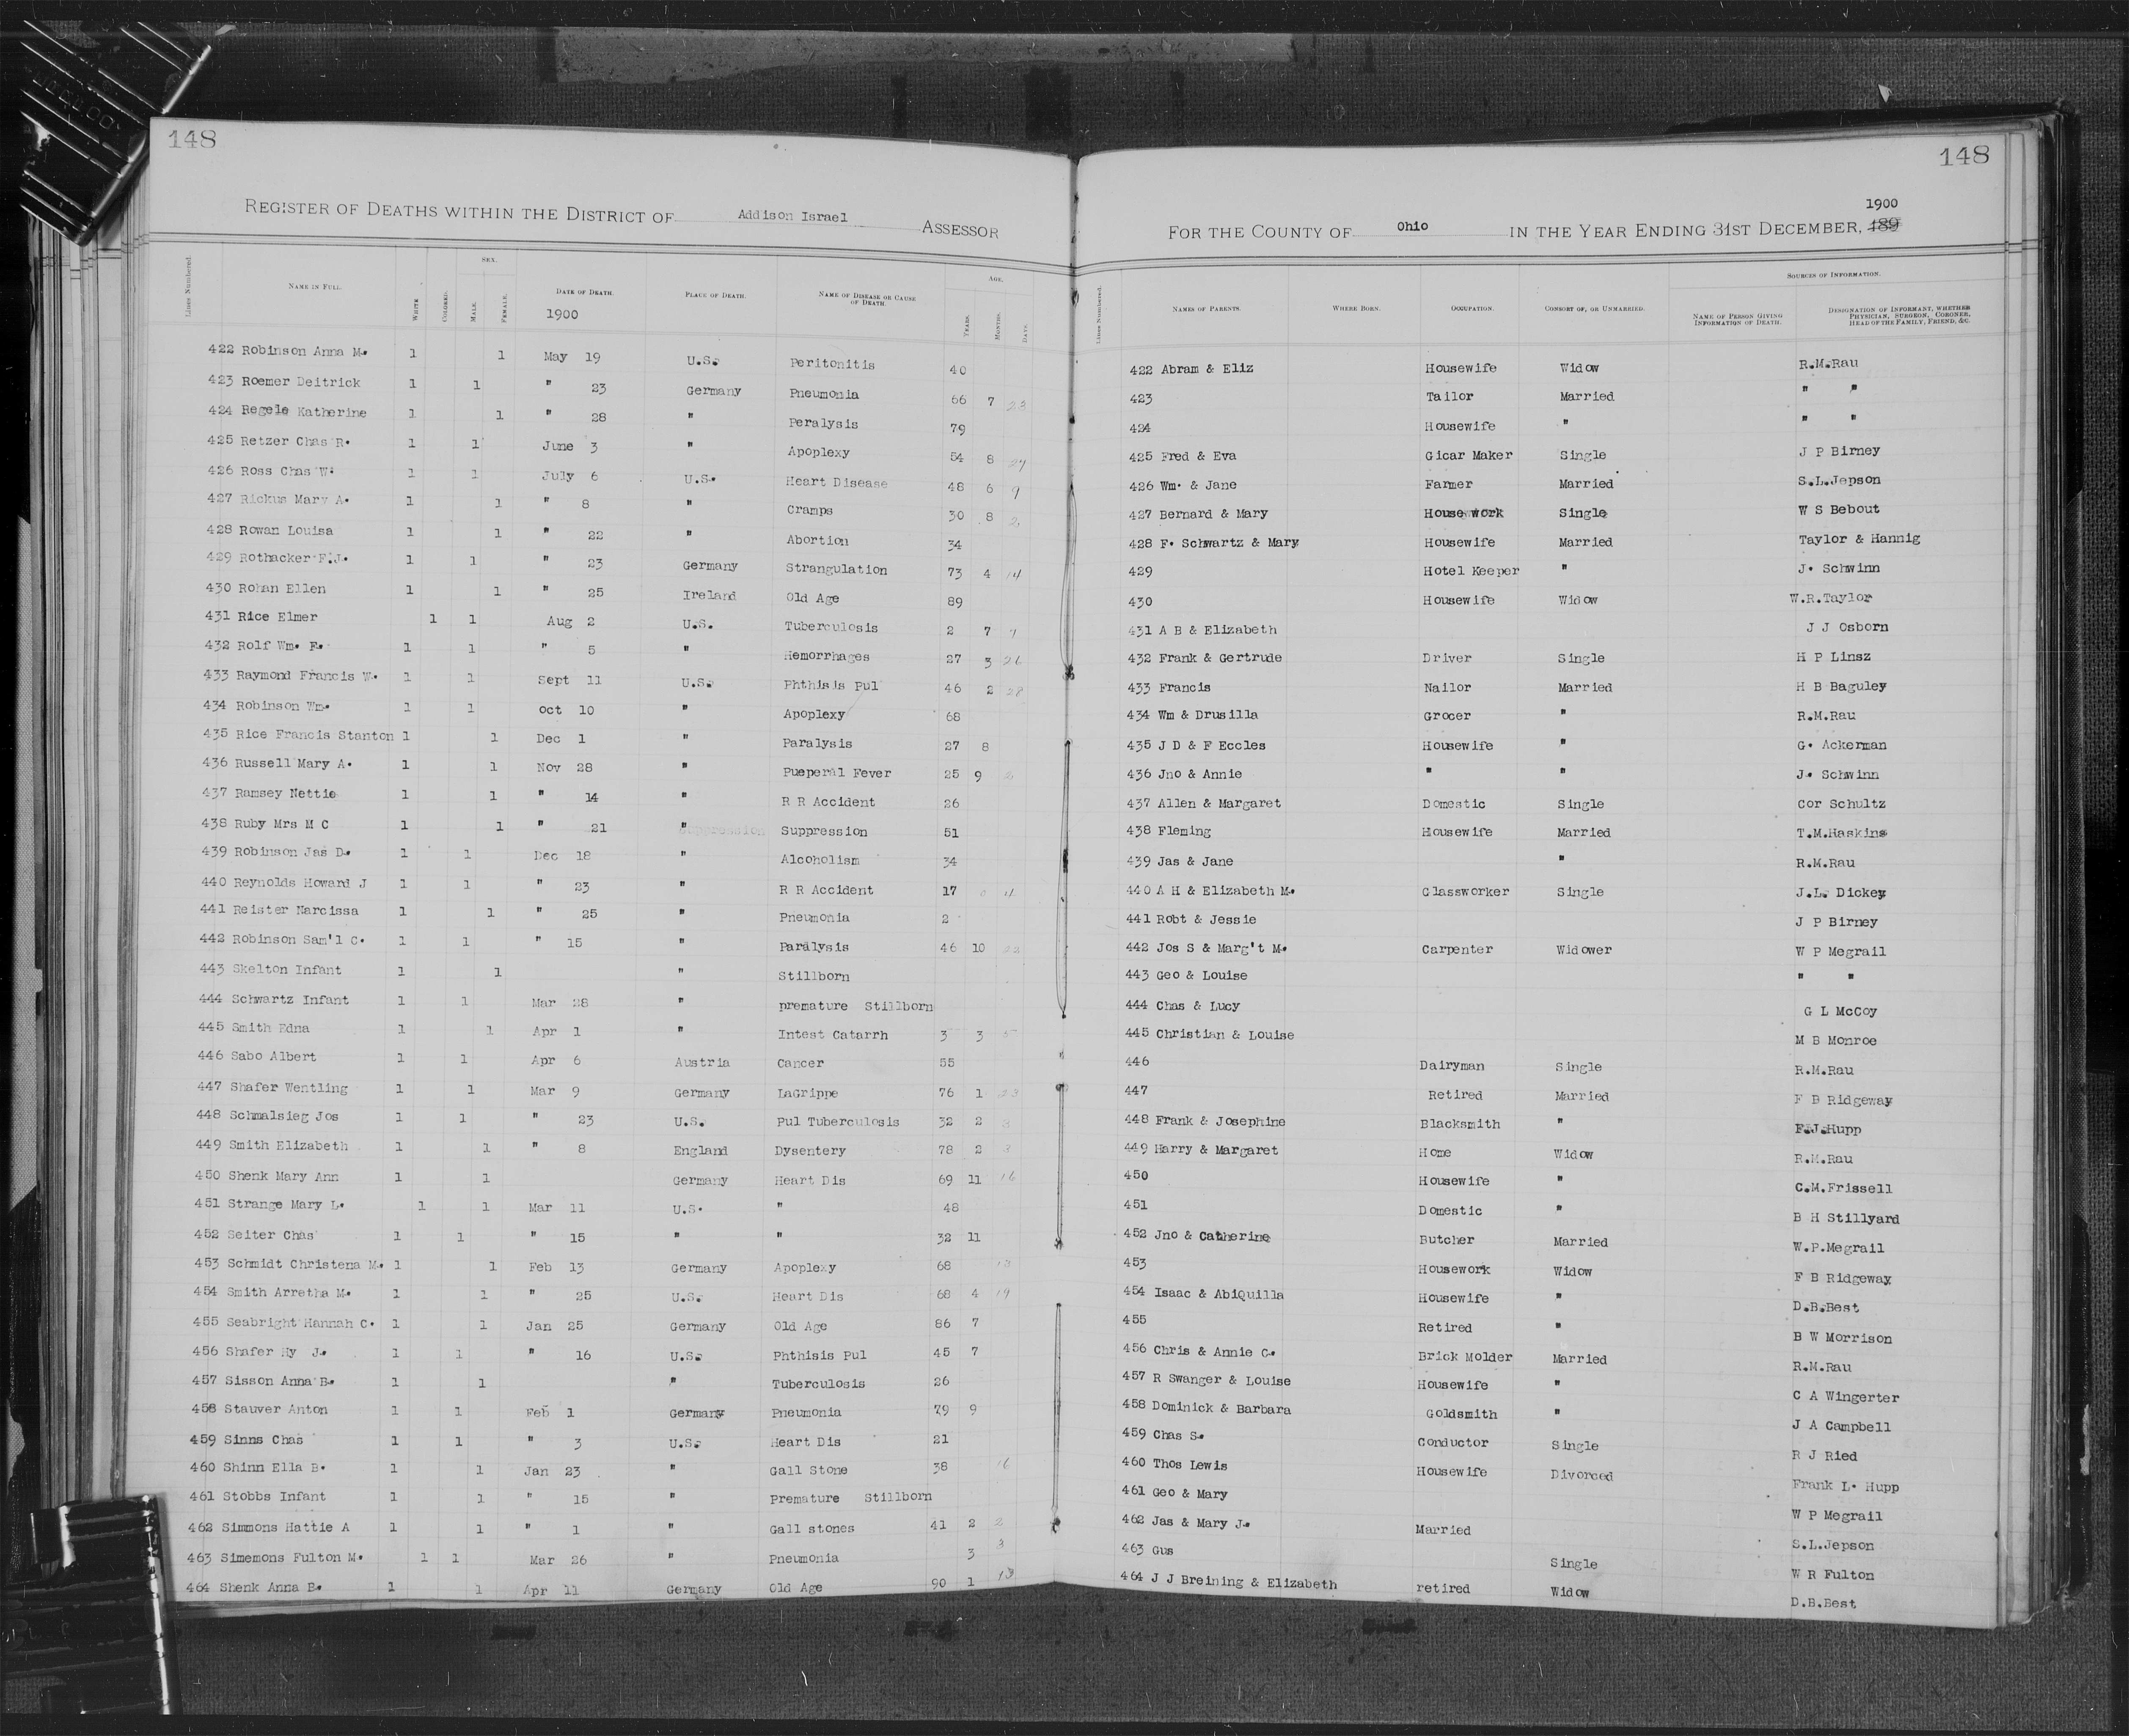 148
REGISTER OF DEATHS WITHIN THE DISTRICT OF Addison Israel ASSESSOR
Lines Numbered. NAME IN FULL. WHITE COLORED. SEX. MALE. FEMALE. DATE OF DEATH. 1900 PLACE OF DEATH. NAME OF DISEASE OR CAUSE OF DEATH. AGE. YEARS. MONTHS. DAYS.
422 Robinson Anna M. 1 1 May 19 U.S. Peritonitis 40
423 Roemer Deitrick 1 1 " 23 Germany Pneumonia 66 7 23
424 Regele Katherine 1 1 " 28 " Peralysis 79
425 Retzer Chas R. 1 1 June 3 " Apoplexy 54 8 27
426 Ross Chas W. 1 1 July 6 U.S. Heart Disease 48 6 9
427 Rickus Mary A. 1 1 " 8 " Cramps 30 8 2
428 Rowan Louisa 1 1 " 22 " Abortion 34
429 Rothacker F.J. 1 1 " 23 Germany Strangulation 73 4 14
430 Rohan Ellen 1 1 " 25 Ireland Old Age 89
431 Rice Elmer 1 1 Aug 2 U.S. Tuberculosis 2 7 7
432 Rolf Wm. F. 1 1 " 5 " Hemorrhages 27 3 26
433 Raymond Francis W. 1 1 Sept 11 U.S. Phthisis Pul 46 2 28
434 Robinson Wm. 1 1 Oct 10 " Apoplexy 68
435 Rice Francis Stanton 1 1 Dec 1 " Paralysis 27 8
436 Russell Mary A. 1 1 Nov 28 " Pueperal Fever 25 9
437 Ramsey Nettie 1 1 " 14 " R R Accident 26
438 Ruby Mrs M C 1 1 " 21 " Suppression 51
439 Robinson Jas D. 1 1 Dec 18 " Alcoholism 34
440 Reynolds Howard J 1 1 " 23 " R R Accident 17
441 Reister Narcissa 1 1 " 25 " Pneumonia 2
442 Robinson Sam'l C. 1 1 " 15 " Paralysis 46 10 22
443 Skelton Infant 1 1 " Stillborn
444 Schwartz Infant 1 1 Mar 28 " premature Stillborn
445 Smith Edna 1 1 Apr 1 " Intest Catarrh 3 3 5
446 Sabo Albert 1 1 Apr 6 Austria Cancer 55
447 Shafer Wentling 1 1 Mar 9 Germany LaGrippe 76 1 23
448 Schmalsieg Jos 1 1 " 23 U.S. Pul Tuberculosis 32 2 3
449 Smith Elizabeth 1 1 " 8 England Dysentery 78 2 3
450 Shenk Mary Ann 1 1 Germany Heart Dis 69 11 16
451 Strange Mary L. 1 1 Mar 11 U.S. " 48
452 Seiter Chas 1 1 " 15 " " 32 11
453 Schmidt Christena M. 1 1 Feb 13 Germany Apoplexy 68
454 Smith Arretha M. 1 1 " 25 U.S. Heart Dis 68 4 19
455 Seabright Hannah C. 1 1 Jan 25 Germany Old Age 86 7
456 Shafer Hy J. 1 1 " 16 U.S. Phthisis Pul 45 7
457 Sisson Anna B. 1 1 " Tuberculosis 26
458 Stauver Anton 1 1 Feb 1 Germany Pneumonia 79 9
459 Sinns Chas 1 1 " 3 U.S. Heart Dis 21
460 Shinn Ella B. 1 1 Jan 23 " Gall Stone 38 16
461 Stobbs Infant 1 1 " 15 " Premature Stillborn
462 Simmons Hattie A 1 1 " 1 " Gall stones 41 2 2
463 Simemons Fulton M. 1 1 Mar 26 " Pneumonia 3 3
464 Shenk Anna B. 1 1 Apr 11 Germany Old Age 90 1 13
148
FOR THE COUNTY OF Ohio IN THE YEAR ENDING 31ST DECEMBER, 189 1900
Lines Numbered. NAMES OF PARENTS. WHERE BORN. OCCUPATION. CONSORT OF, OR UNMARRIED. SOURCES OF INFORMATION. NAME OF PERSON GIVING INFORMATION OF DEATH. DESIGNATION OF INFORMANT, WHETHER PHYSICIAN, SURGEON, CORONER, HEAD OF THE FAMILY, FRIEND, &C.
422 Abram & Eliz Housewife Widow R.M.Rau
423 Tailor Married " "
424 Housewife " " "
425 Fred & Eva Gicar Maker Single J P Birney
426 Wm. & Jane Farmer Married S.L.Jepson
427 Bernard & Mary House work Single W S Bebout
428 F. Schwartz & Mary Housewife Married Taylor & Hannig
429 Hotel Keeper " J. Schwinn
430 Housewife Widow W.R.Taylor
431 A B & Elizabeth J J Osborn
432 Frank & Gertrude Driver Single H P Linsz
433 Francis Nailor Married H B Baguley
434 Wm & Drusilla Grocer " R.M.Rau
435 J D & F Eccles Housewife " G. Ackerman
436 Jno & Annie " " J. Schwinn
437 Allen & Margaret Domestic Single Cor Schultz
438 Fleming Housewife Married T.M.Haskins
439 Jas & Jane " R.M.Rau
440 A H & Elizabeth M. Glassworker Single J.L. Dickey
441 Robt & Jessie J P Birney
442 Jos S & Marg't M. Carpenter Widower W P Megrail
443 Geo & Louise " "
444 Chas & Lucy G L McCoy
445 Christian & Louise M B Monroe
446 Dairyman Single R.M.Rau
447 Retired Married F B Ridgeway
448 Frank & Josephine Blacksmith " F.J.Hupp
449 Harry & Margaret Home Widow R.M.Rau
450 Housewife " C.M.Frissell
451 Domestic " B H Stillyard
452 Jno & Catherine Butcher Married W.P.Megrail
453 Housework Widow F B Ridgeway
454 Isaac & Abiquilla Housewife " D.B.Best
455 Retired " B W Morrison
456 Chris & Annie C. Brick Molder Married R.M.Rau
457 R Swanger & Louise Housewife " C A Wingerter
458 Dominick & Barbara Goldsmith " J A Campbell
459 Chas S. Conductor Single R J Ried
460 Thos Lewis Housewife Divorced Frank L. Hupp
461 Geo & Mary W P Megrail
462 Jas & Mary J. Married S.L.Jepson
463 Gus Single W R Fulton
464 J J Breining & Elizabeth retired Widow D.B.Best